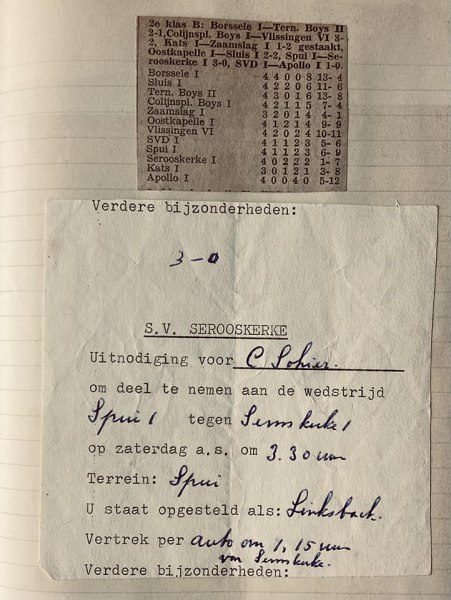 2e klas B: Borssele I—Tern. Boys II
2-1,Colijnspl. Boys I—Vlissingen VI 3-
2, Kats I—Zaamslag I 1-2 gestaakt,
Oostkapelle I—Sluis I 2-2, Spui I—Se-
rooskerke I 3-0, SVD I—Apollo I 1-0.
Borssele I 4 4 0 0 8 13- 4
Sluis I 4 2 2 0 6 11- 6
Tern. Boys II 4 3 0 1 6 13- 8
Colijnspl. Boys I 4 2 1 1 5 7- 4
Zaamslag I 3 2 0 1 4 4- 1
Oostkapelle I 4 1 2 1 4 9- 9
Vlissingen VI 4 2 0 2 4 10-11
SVD I 4 1 1 2 3 5- 6
Spui I 4 1 1 2 3 6- 9
Serooskerke I 4 0 2 2 2 1- 7
Kats I 3 0 1 2 1 3- 8
Apollo I 4 0 0 4 0 5-12
Verdere bijzonderheden:
3-0
S.V. SEROOSKERKE
Uitnodiging voor C Sohier.
om deel te nemen aan de wedstrijd
Spui 1 tegen Serooskerke 1
op zaterdag a.s. om 3.30 uur
Terrein: Spui
U staat opgesteld als: Linksback.
Vertrek per auto om 1,15 uur
van Serooskerke.
Verdere bijzonderheden: